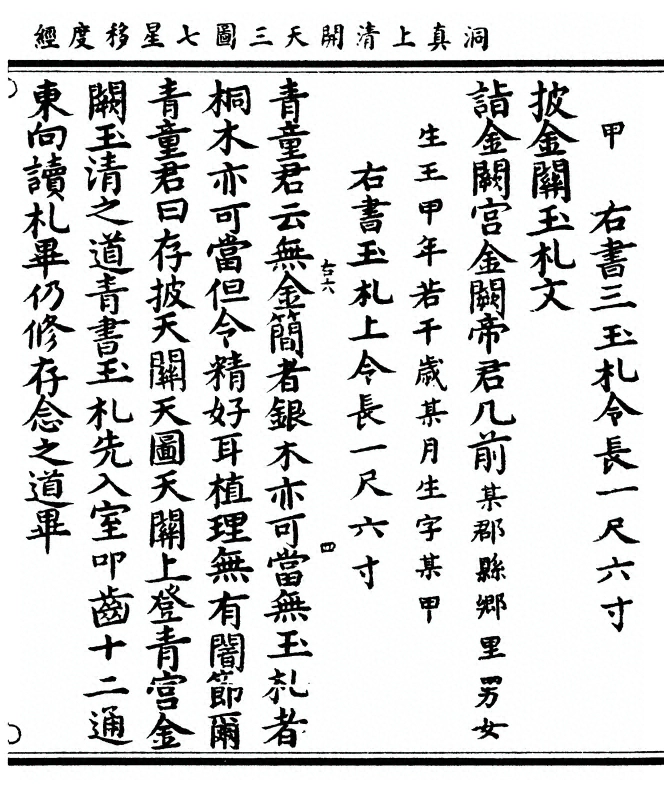 洞真上清開天三圖七星移度經
甲　右書三玉札令長一尺六寸
披金關玉札文
詣金闕宮金闕帝君几前某郡縣鄉里男女
生王甲年若干歲某月生字某甲
右書玉札上令長一尺六寸
右六　四
青童君云無金簡者銀木亦可當無玉札者
桐木亦可當但令精好耳植理無有闇節爾
青童君曰存披天關天圖天關上登青宮金
闕玉清之道青書玉札先入室叩齒十二通
東向讀札畢仍修存念之道畢